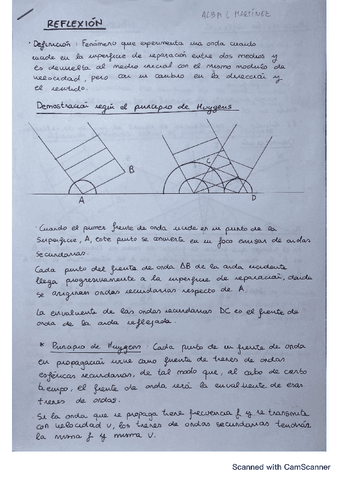 ALBA L MARTÍNEZ
REFLEXIÓN
· Definición: Fenómeno que experimenta una onda cuando
incide en la superficie de separación entre dos medios y
es devuelta al medio inicial con el mismo módulo de
velocidad, pero con un cambio en la dirección y
el sentido.
Demostración según el principio de Huygens
L
B
A
C
D
· Cuando el primer frente de onda incide en un punto de la
superficie, A, este punto se convierte en un foco emisor de ondas
secundarias.
Cada punto del frente de onda AB de la onda incidente
llega progresivamente a la superficie de separación, donde
se originan ondas secundarias respecto de A.
La envolvente de las ondas secundarias DC es el frente de
onda de la onda reflejada.
* Principio de Huygens: Cada punto de un frente de onda
en propagación sirve como fuente de trenes de ondas
esféricas secundarias, de tal modo que, al cabo de cierto
tiempo, el frente de onda será la envolvente de esos
trenes de ondas.
Si la onda que se propaga tiene frecuencia f y se transmite
con velocidad v, los trenes de ondas secundarias tendrán
la misma f y misma v.
Scanned with CamScanner